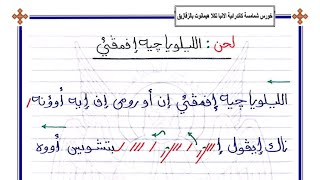 خورس شمامسة كاتدرائية الانبا تكلا هيمانوت بالزقازيق
لحن : الليلويا چيه إفمڤئي
الليلويا چيه إفمڤئي إن أوروس إن إبه أوؤنه
ناك إيڤول إ بتشويس أووه